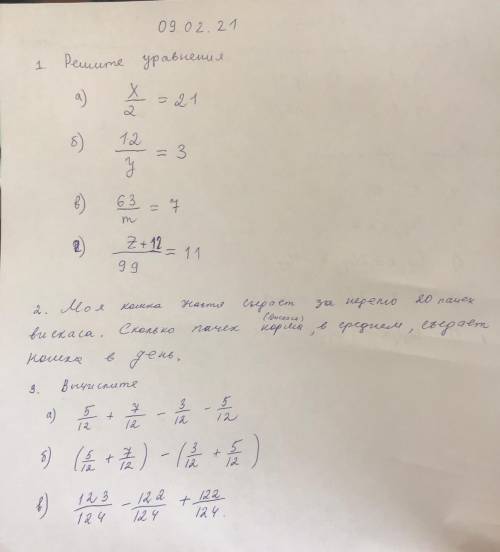 09.02.21
1. Решите уравнения
а) x/2 = 21
б) 12/y = 3
в) 63/m = 7
г) z+12/99 = 11
2. Моя кошка Настя съедает за неделю 20 пачек
(вискаса)
вискаса. Сколько пачек корма, в среднем, съедает
кошка в день.
3. Вычислите
а) 5/12 + 7/12 - 3/12 - 5/12
б) (5/12 + 7/12) - (3/12 + 5/12)
в) 123/124 - 122/124 + 122/124.